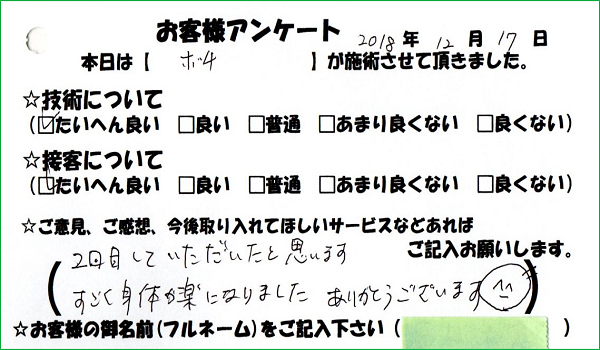 お客様アンケート 2018年 12月 17日
本日は【 ホ゛4 】が施術させて頂きました。
☆技術について
(☑たいへん良い □良い □普通 □あまり良くない □良くない)
☆接客について
(☑たいへん良い □良い □普通 □あまり良くない □良くない)
☆ご意見、ご感想、今後取り入れてほしいサービスなどあれば
ご記入お願いします。
(2回目していただいたと思います
すごく身体が楽になりました ありがとうございます^^)
☆お客様の御名前(フルネーム)をご記入下さい( )